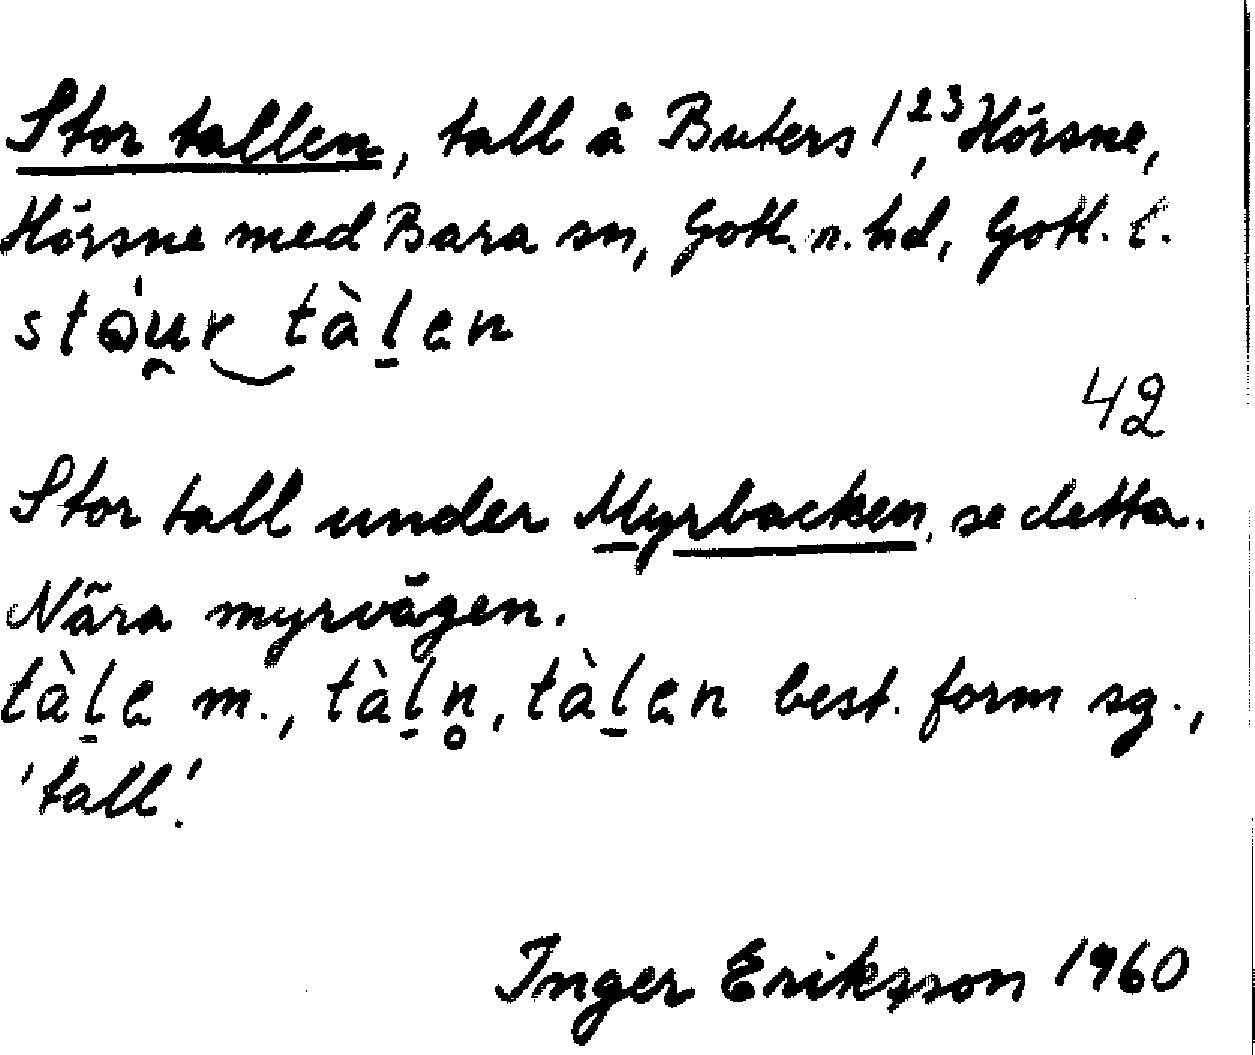 Stor tallen, tall å Buters 1²³, Hörsne,
Hörsne med Bara sn, Gotl. n. hd, Gotl. l.
stə́u̯r‿tàl̠en
42
Stor tall under Myrbacken, se detta.
Nära myrvägen.
tàl̠e m., tàl̠n̥, tàl̠en best. form sg.,
'tall'.
Inger Eriksson 1960